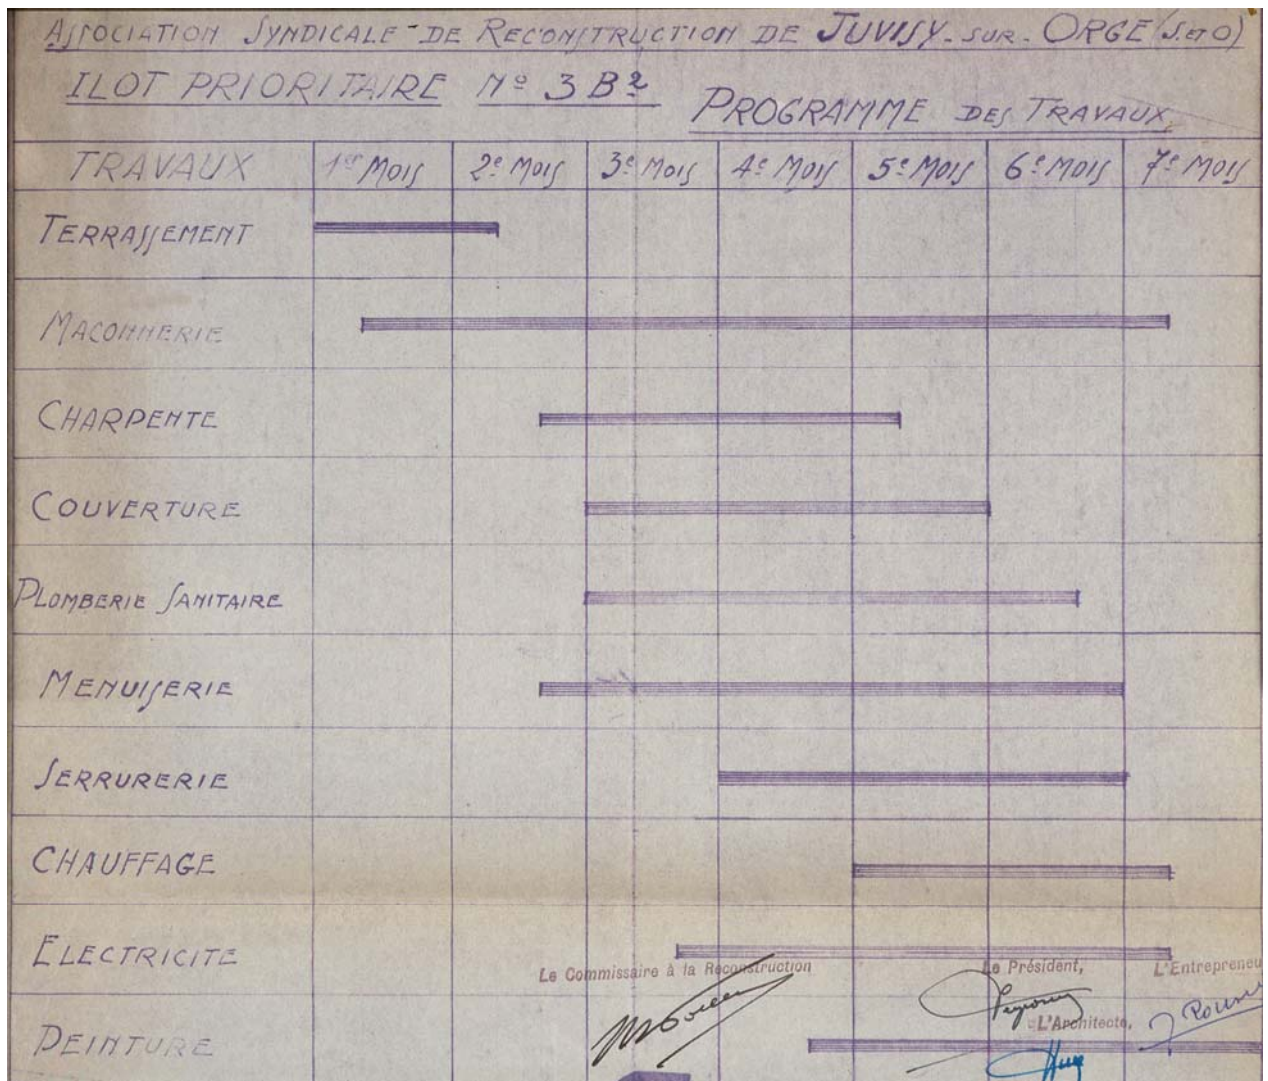 ASSOCIATION SYNDICALE - DE RECONSTRUCTION DE JUVISY - SUR - ORGE (S. ET O)
ILOT PRIORITAIRE Nº 3 B²
PROGRAMME DES TRAVAUX
TRAVAUX 1er MOIS 2e MOIS 3e MOIS 4e MOIS 5e MOIS 6e MOIS 7e MOIS
TERRASSEMENT
MACONNERIE
CHARPENTE
COUVERTURE
PLOMBERIE SANITAIRE
MENUISERIE
SERRURERIE
CHAUFFAGE
ELECTRICITE
Le Commissaire à la Reconstruction Le Président, L'Entrepreneu
L'Architecte,
PEINTURE